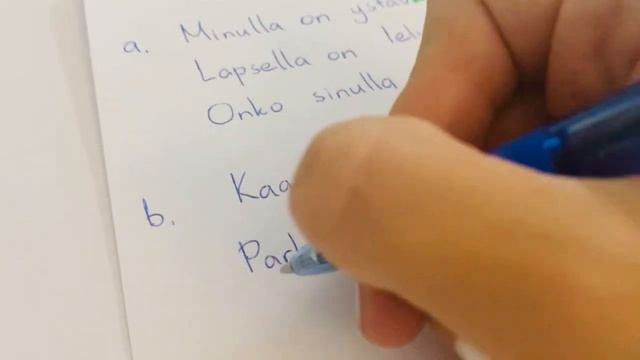 a. Minulla on ystäv
Lapsella on lel
Onko sinulla
b. Kaa
Par